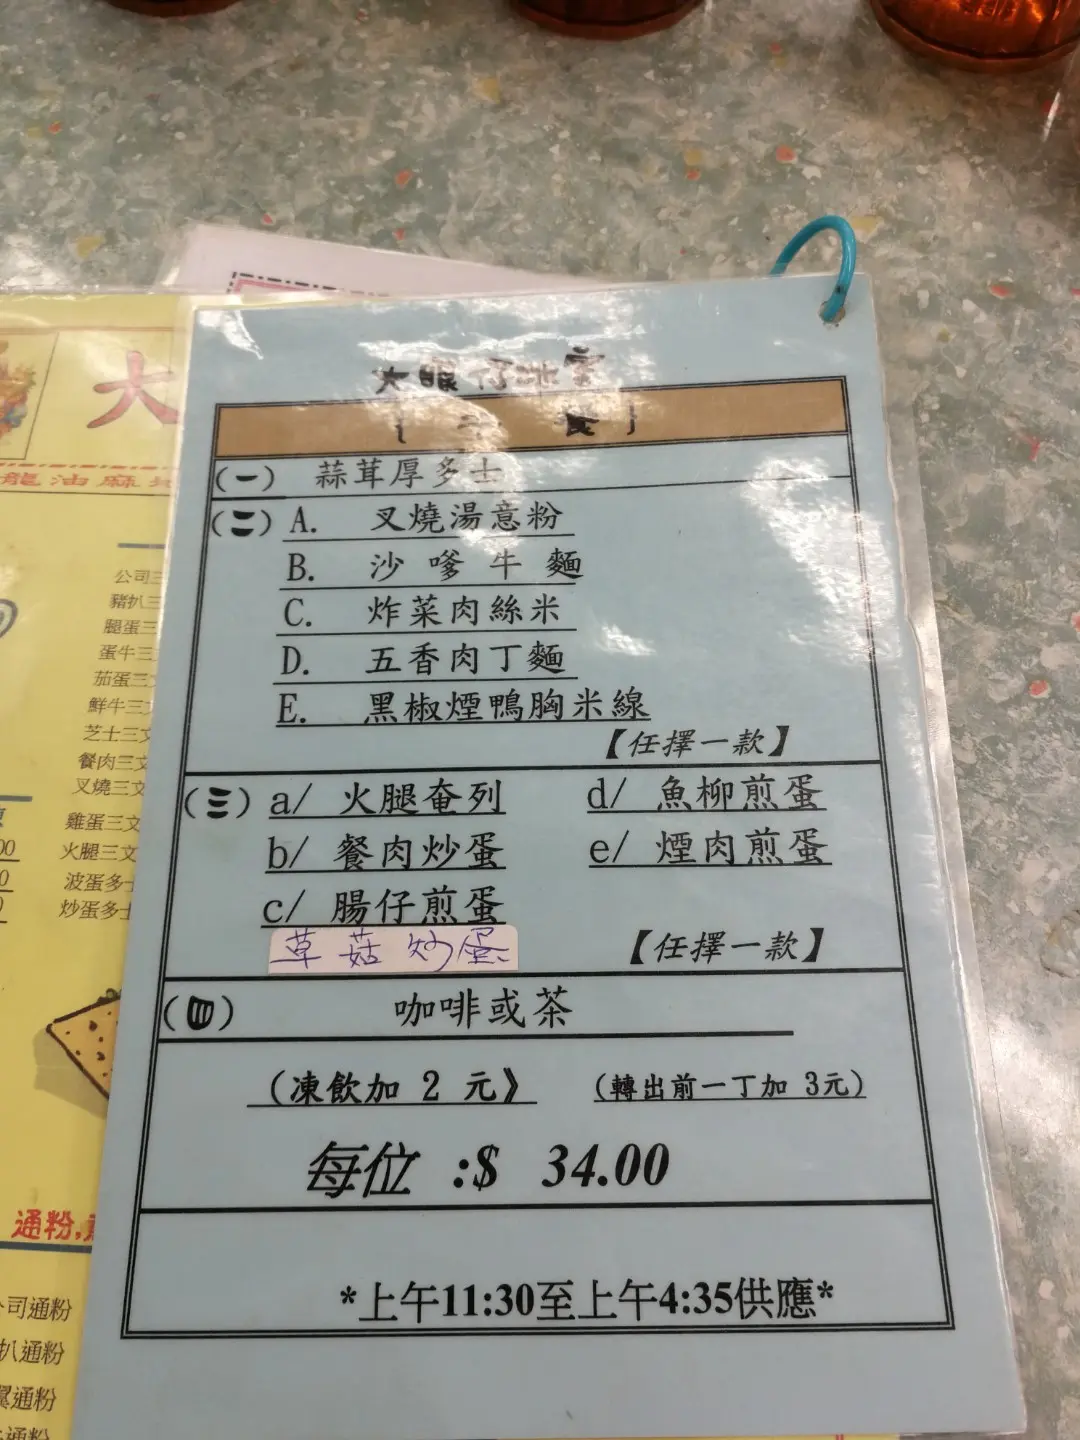 大眼仔冰室
餐
(一) 蒜茸厚多士
(二) A. 叉燒湯意粉
B. 沙嗲牛麵
C. 炸菜肉絲米
D. 五香肉丁麵
E. 黑椒煙鴨胸米線
【任擇一款】
(三) a/ 火腿奄列 d/ 魚柳煎蛋
b/ 餐肉炒蛋 e/ 煙肉煎蛋
c/ 腸仔煎蛋
草菇炒蛋
【任擇一款】
(四) 咖啡或茶
(凍飲加 2 元》 (轉出前一丁加 3元)
每位 :$ 34.00
*上午11:30至上午4:35供應*
大
龍油麻地
公司三
豬扒三
腿蛋三
蛋牛三
茄蛋三文
鮮牛三文
芝士三文
餐肉三文
叉燒三文
雞蛋三文
火腿三文
波蛋多士
炒蛋多士
通粉,
公司通粉
扒通粉
通粉
通粉